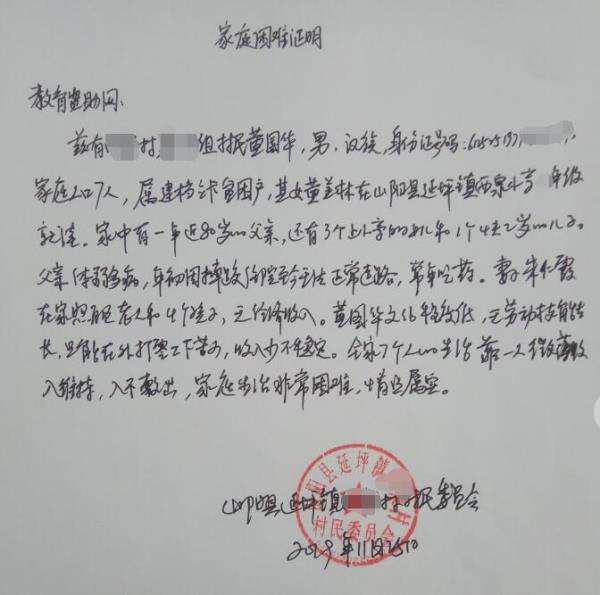 家庭困难证明
教育资助网:
兹有 村 组村民董国华,男,汉族,身份证号码:
家庭人口7人,属建档立卡贫困户,其女董美林在山阳县延坪镇西泉小学 年级
就读。家中有一年近80岁的父亲,还有3个上小学的女儿和1个4岁的儿子。
父亲体弱多病,年初因摔跤住院至今无法正常走路,常年吃药。妻子朱
在家照顾老人和4个孩子,无经济收入。董国华文化程度低,无劳动技能特
长,只能在外打零工下苦力,收入少不稳定。全家7个人的生活靠一人微薄收
入维持,入不敷出,家庭生活非常困难,情况属实。
山阳县延坪镇 村村民委员会
2019年11月25日
山阳县延坪镇 村
村民委员会